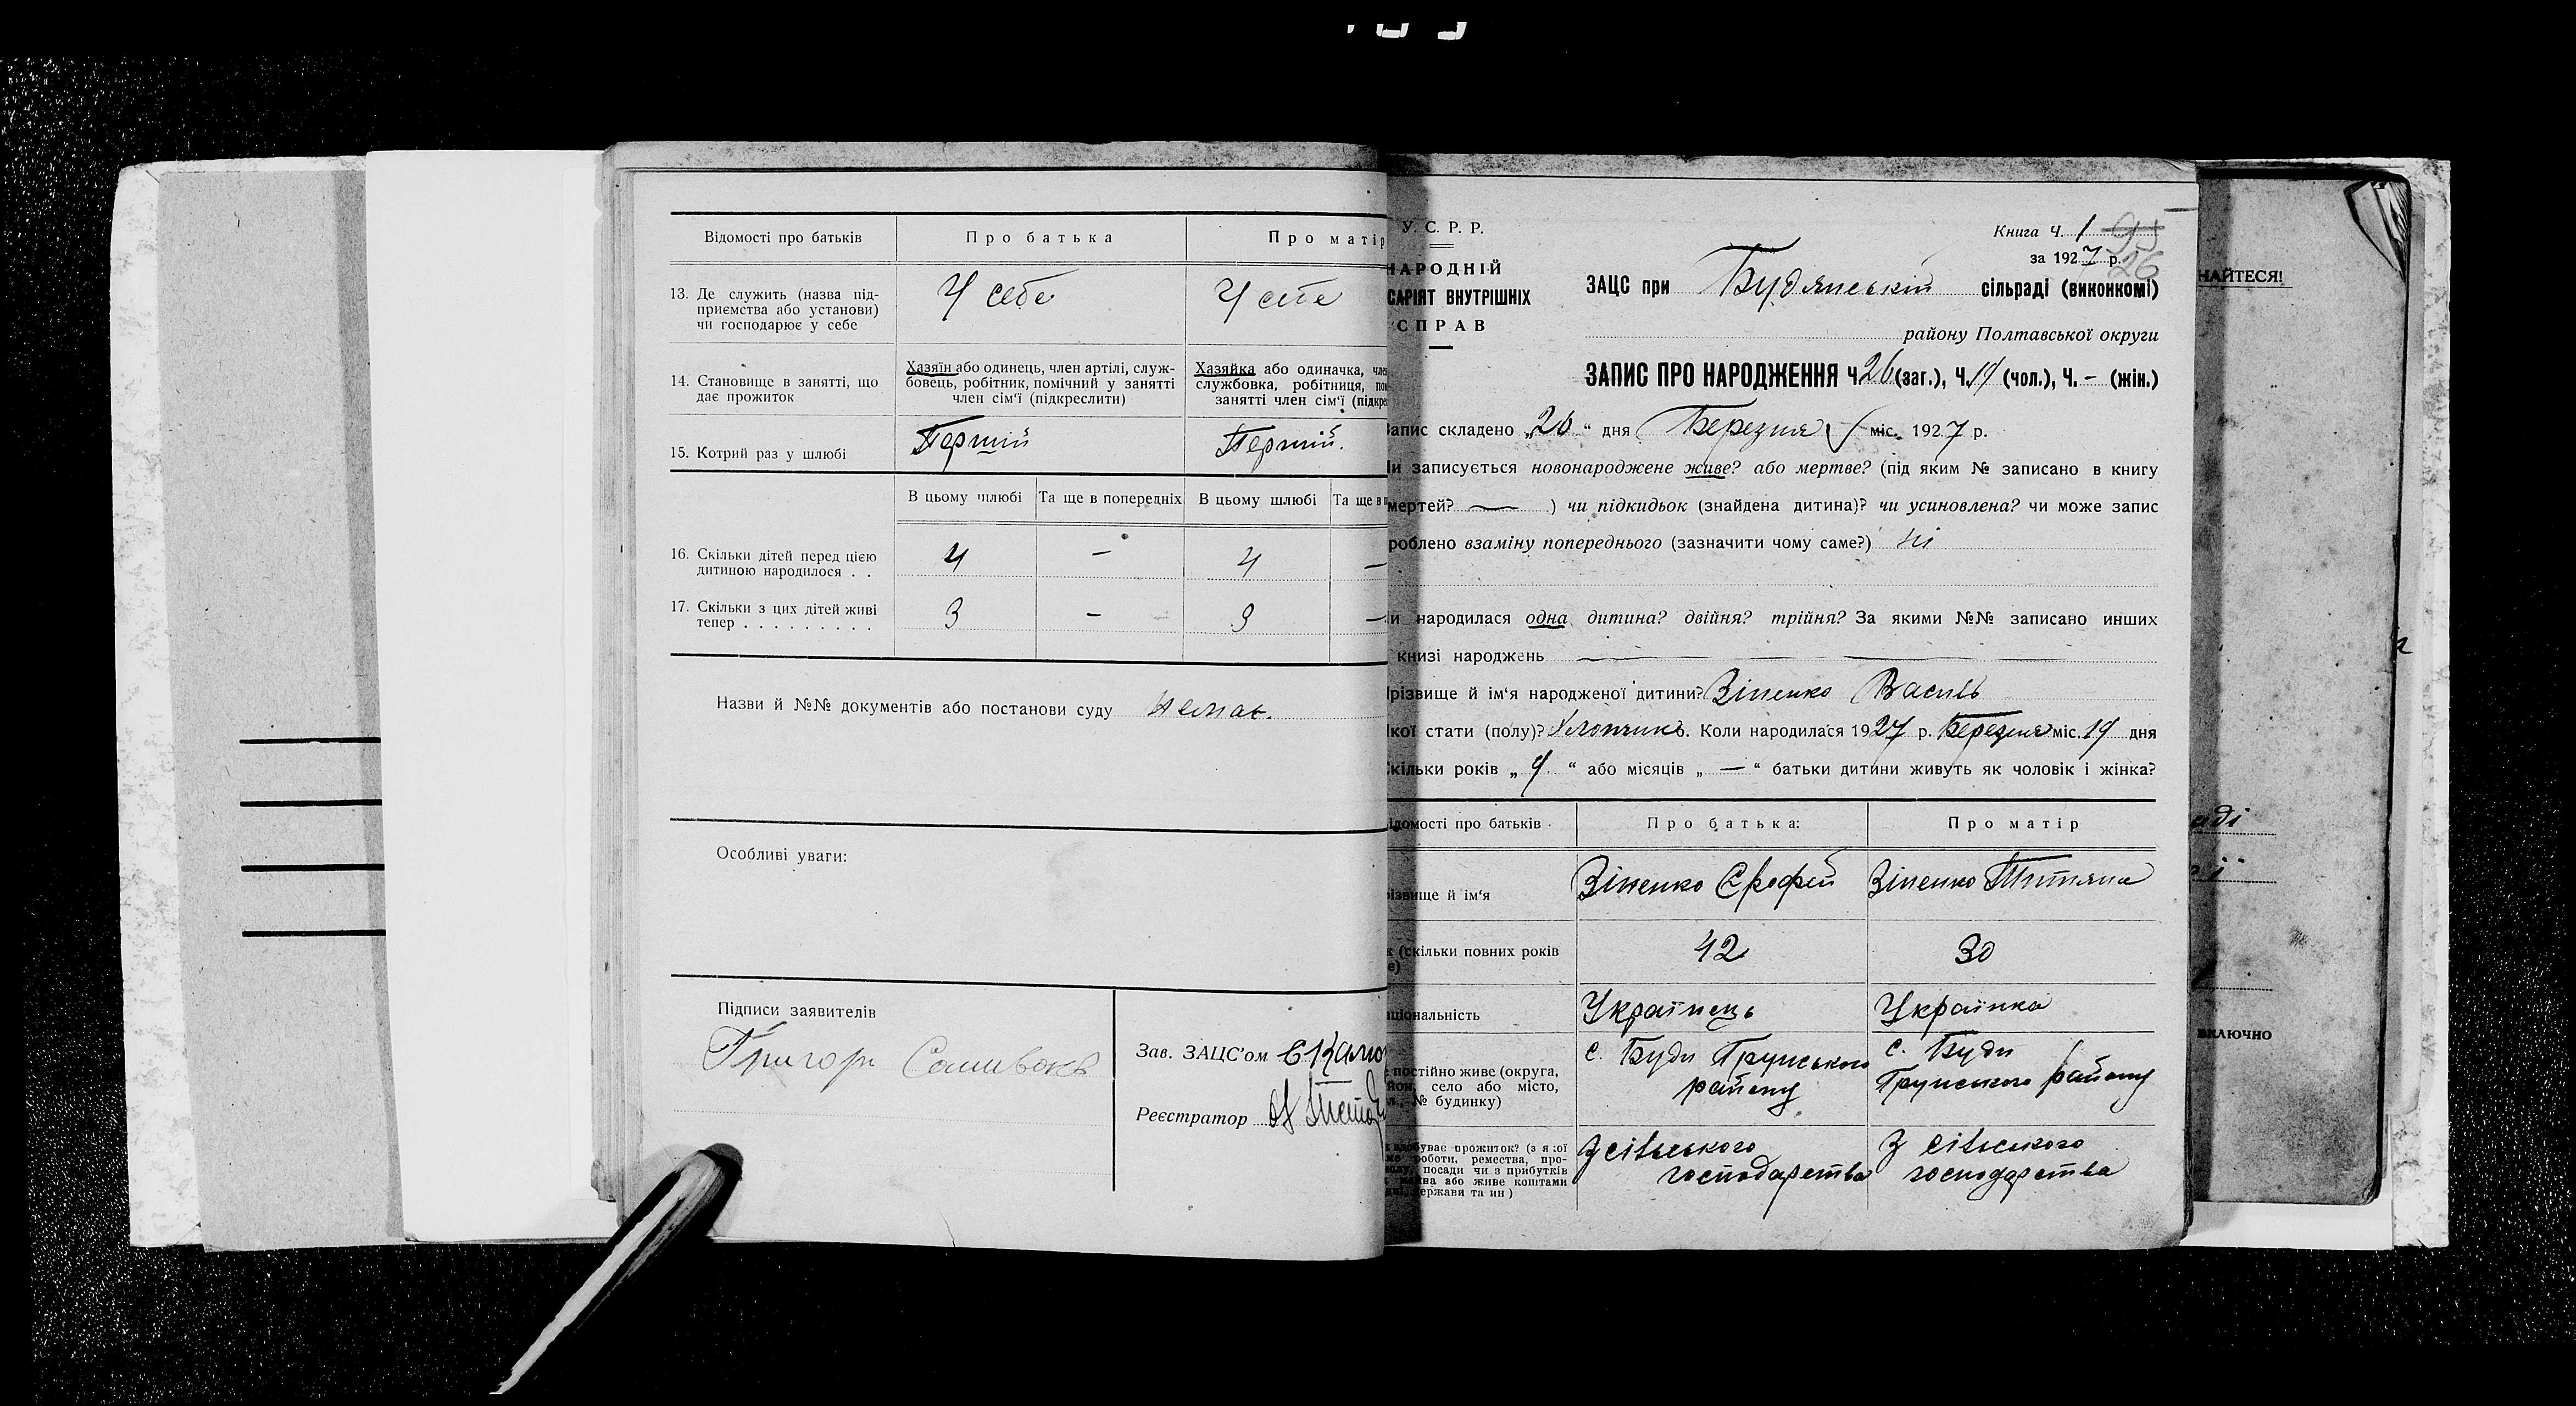 Відомості про батьків
Про батька
Про матір
13. Де служить (назва під-
приємства або установи)
чи господарює у себе
У себе
У себе
14. Становище в занятті, що
дає прожиток
Хазяїн або одинець, член артілі, служ-
бовець, робітник, помічний у занятті
член сім'ї (підкреслити)
Хазяйка або одиначка, чле
службовка, робітниця, по
занятті член сім'ї (підкре
15. Котрий раз у шлюбі
Перший
Перший.
В цьому шлюбі
Та ще в попередніх
В цьому шлюбі
Та ще в
16. Скільки дітей перед цією
дитиною народилося . .
4 — 4 —
17. Скільки з цих дітей живі
тепер . . . . . . . . .
3 — 3 —
Назви й №№ документів або постанови суду немає.
Особливі уваги:
Підписи заявителів
Григорій
Зав. ЗАЦС'ом
Реєстратор
У. С. Р. Р.
НАРОДНІЙ
САРІЯТ ВНУТРІШНІХ
СПРАВ
Книга Ч. 1
за 1927 р.
26
ЗАЦС при Будянській сільраді (виконкомі)
району Полтавської округи
ЗАПИС ПРО НАРОДЖЕННЯ Ч. 26 (заг.), Ч. 14 (чол.), Ч. — (жін.)
Запис складено „26" дня Березня міс. 1927 р.
и записується новонароджене живе? або мертве? (під яким № записано в книгу
мертей? — ) чи підкидьок (знайдена дитина)? чи усиновлена? чи може запис
роблено взаміну попереднього (зазначити чому саме?) ні
и народилася одна дитина? двійня? трійня? За якими №№ записано инших
книзі народжень —
різвище й ім'я народженої дитини? Зіненко Василь
кої стати (полу)? Хлопчик. Коли народилася 1927 р. Березня міс. 19 дня
кільки років „9" або місяців „—" батьки дитини живуть як чоловік і жінка?
ідомості про батьків
Про батька:
Про матір
ізвище й ім'я
Зіненко Єрофей
Зіненко Титяна
к (скільки повних років
е)
42
30
ціональність
Українець
Українка
постійно живе (округа,
йон, село або місто,
л., № будинку)
с. Буди Грунського
району
с. Буди
Грунського району
здобуває прожиток? (з якої
ме роботи, ремества, про-
посади чи з прибутків
майна або живе коштами
держави та ин)
З сільського
господарства
З сільського
господарства
НАЙТЕСЯ!
аді
ВКЛЮЧНО